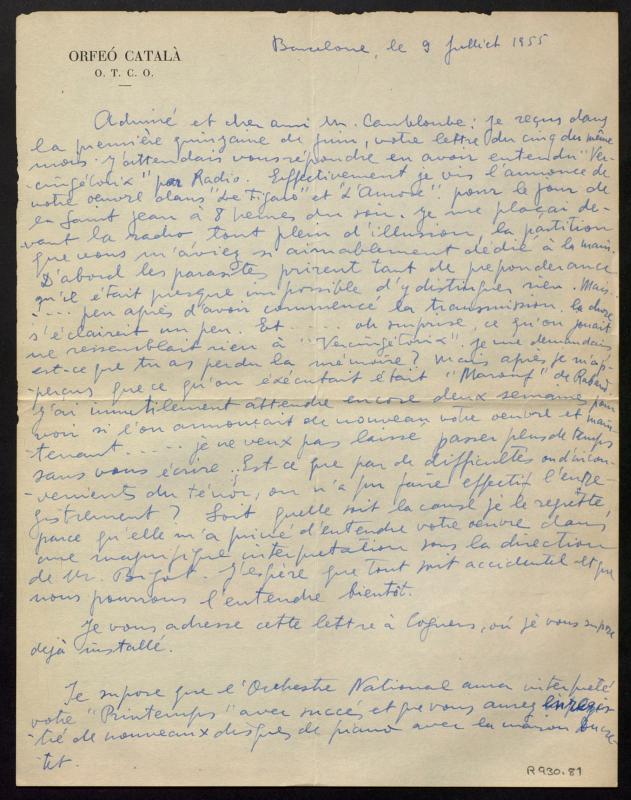 ORFEÓ CATALÀ
O. T. C. O.
Barcelone, le 9 Juillet 1955
Admiré et cher ami Mr. Canteloube: je reçus dans
la première quinzaine de Juin, votre lettre du cinq du même
mois. J'attendais vous répondre en avoir entendu "Ver-
cingétorix" par Radio. Effectivement je vis l'annonce de
votre oeuvre dans "Le Figaro" et "L'Aurore" pour le jour de
la Saint Jean à 8 heures du soir. Je me plaçai de-
vant la radio tout plein d'illusion, la partition
que vous m'aviez si aimablement dédié à la main.
D'abord les parasites prirent tant de preponderance
qu'il était presque impossible d'y distinguer rien. Mais
.... peu après d'avoir commencé la transmission la chose
s'éclaireit un peu. Et ...... oh surprise, ce qu'on jouait
ne ressemblait rien à "Vercingétorix". Je me demandais
est-ce que tu as perdu la mémoire? Mais après je m'a-
perçus que ce qu'on éxécutait était "Marouf" de Rabaud.
J'ai inutilement attendre encore deux semaines pour
voir si l'on annonçait de nouveau votre oeuvre et main-
tenant ..... je ne veux pas laisse passer plus de temps
sans vous écrire. Est-ce que par de difficultés ou d'incon-
venients du ténor, on n'a pu faire effectif l'enre-
gistrement? Soit quelle soit la cause je le regrette,
parce qu'elle m'a privé d'entendre votre oeuvre dans
une magnifique interpretation sous la direction
de Mr. Bigot. J'espère que tout soit accidentel et que
nous pourrons l'entendre bientôt.
Je vous adresse cette lettre à Coguers, où je vous suppose
dejà installé.
Je supose que l'Orchestre National aura interpreté
votre "Printemps" avec succés et que vous aurez enregis-
tré de nouveaux disques de piano avec la maison Ducre-
tet.
R 930.81